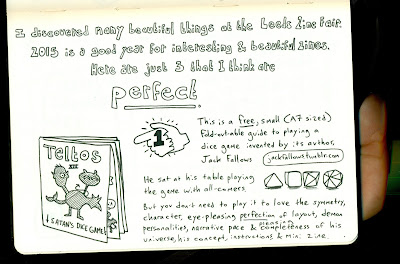 I discovered many beautiful things at the Leeds Zine Fair.
2015 is a good year for interesting & beautiful zines.
Here are just 3 that I think are
perfect
1
This is a free, small (A7 sized)
fold-out-able guide to playing a
dice game invented by its author,
Jack Fallows
jackfallows.tumblr.com
He sat at his table playing
the game with all-comers.
But you don't need to play it to love the symmetry,
character, eye-pleasing perfection of layout, demon
personalities, narrative pace & pleasing completeness of his
universe, his concept, instructions & mini zine.
Teltos
SATAN'S DICE GAME!